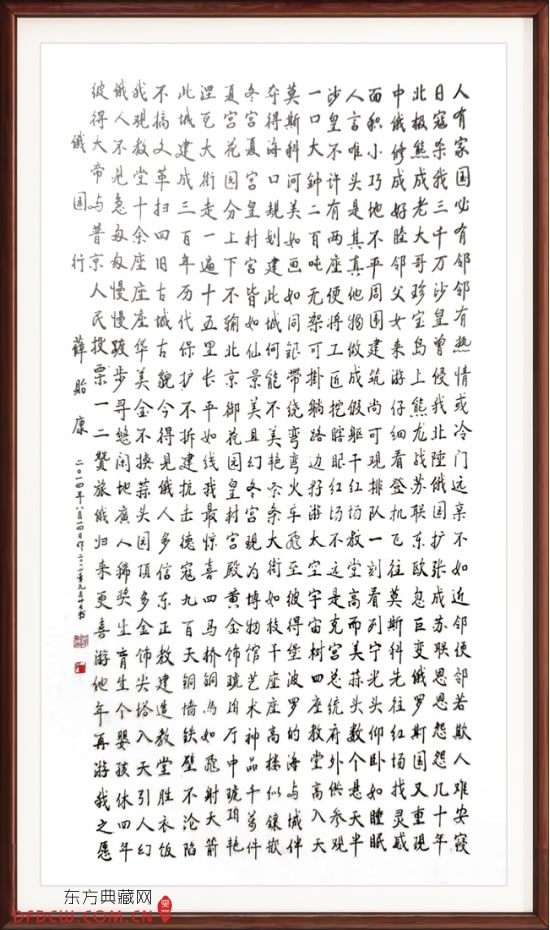 人有家国必有邻邻有热情或冷门远亲不如近邻便邻若欺人难安寝
日寇杀我三千万沙皇曾侵我北陲俄国扩张成苏联恩恩怨怨几十年
北极熊成老大哥珍宝岛上熊龙战苏联东欧忽巨变俄罗斯国又重现
中俄修成好睦邻父女来游仔细看登机飞往莫斯科先往红场找灵感
面积小巧地不平周围建筑尚可观排队一刻看列宁光头仰卧如睡眠
人言唯头是其真他物做成假躯干红场教堂高而美蒜头数个悬天半
沙皇不许有两座便将工匠挖瞎眼红场不远是克宫总统府外供参观
一口大钟二百吨无架可掛躺路边好游太空宇宙树四座教堂高入天
莫斯科河美如画如同银带绕弯弯火车飛至彼得堡波罗的海与城伴
夺得海口规划建此城何能不美艳条条大街如枝干座座高楼似镶嵌
冬宫夏宫皇村宫皆如仙景美且幻冬宫现为博物馆艺术神品千万件
夏宫花园分上下不输北京御花园皇村宫殿黄金饰琥珀厅中琥珀艳
涅瓦大街走一遍十五里长平如线我最惊喜四马桥铜马如飛射天箭
此城建成三百年历代保护不拆建抗击德寇九百天铜墙铁壁不沦陷
不搞文革扫四旧古城古貌今得见俄人多信东正教建造教堂胜衣饭
我观教堂十余座座座华美金不换蒜头园顶多金饰尖塔入天引人幻
俄人不见急匆匆慢慢踱步寻悠闲地廣人稀奖生育生个婴孩休四年
彼得大帝与普京人民投票一二赞旅俄归来更喜游他年再游我之愿
俄国行 薛贻康
二〇一四年八月二四日作
东方典藏网
DFDCW.COM.CN